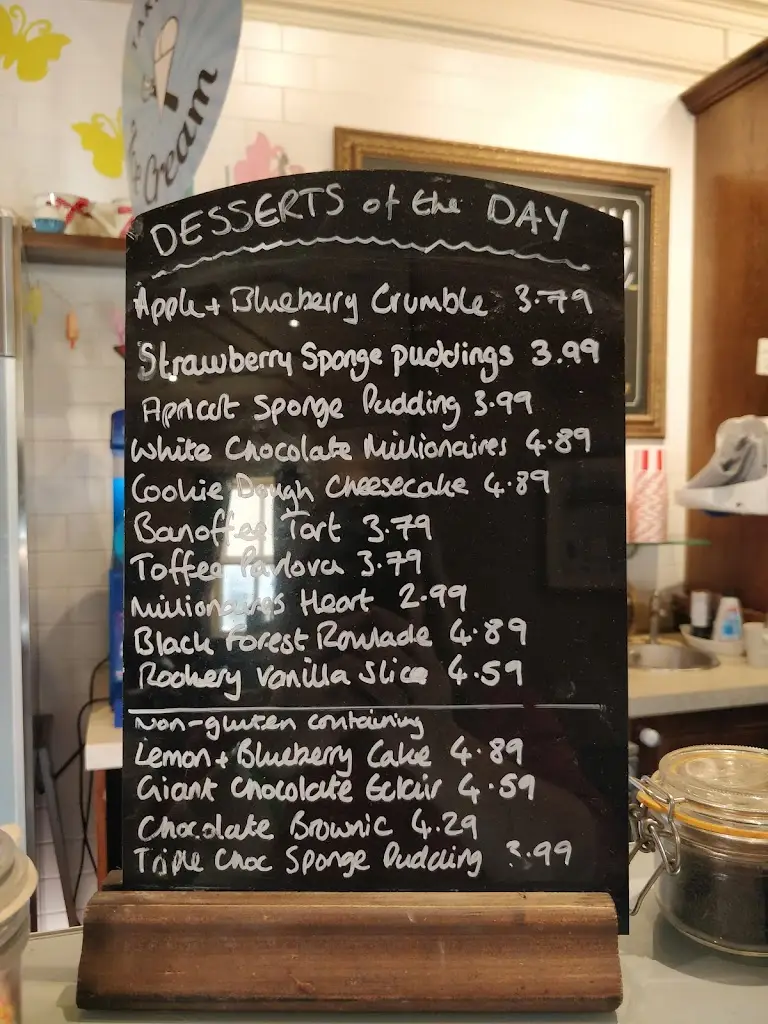 Ice Cream
DESSERTS of the DAY
Apple + Blueberry Crumble 3.79
Strawberry Sponge puddings 3.99
Apricot Sponge Pudding 3.99
White Chocolate Millionaires 4.89
Cookie Dough Cheesecake 4.89
Banoffee Tart 3.79
Toffee Pavlova 3.79
Millionaires Heart 2.99
Black Forest Roulade 4.89
Rookery Vanilla Slice 4.59
Non-gluten containing
Lemon + Blueberry Cake 4.89
Giant Chocolate Eclair 4.59
Chocolate Brownie 4.29
Triple Choc Sponge Pudding 3.99